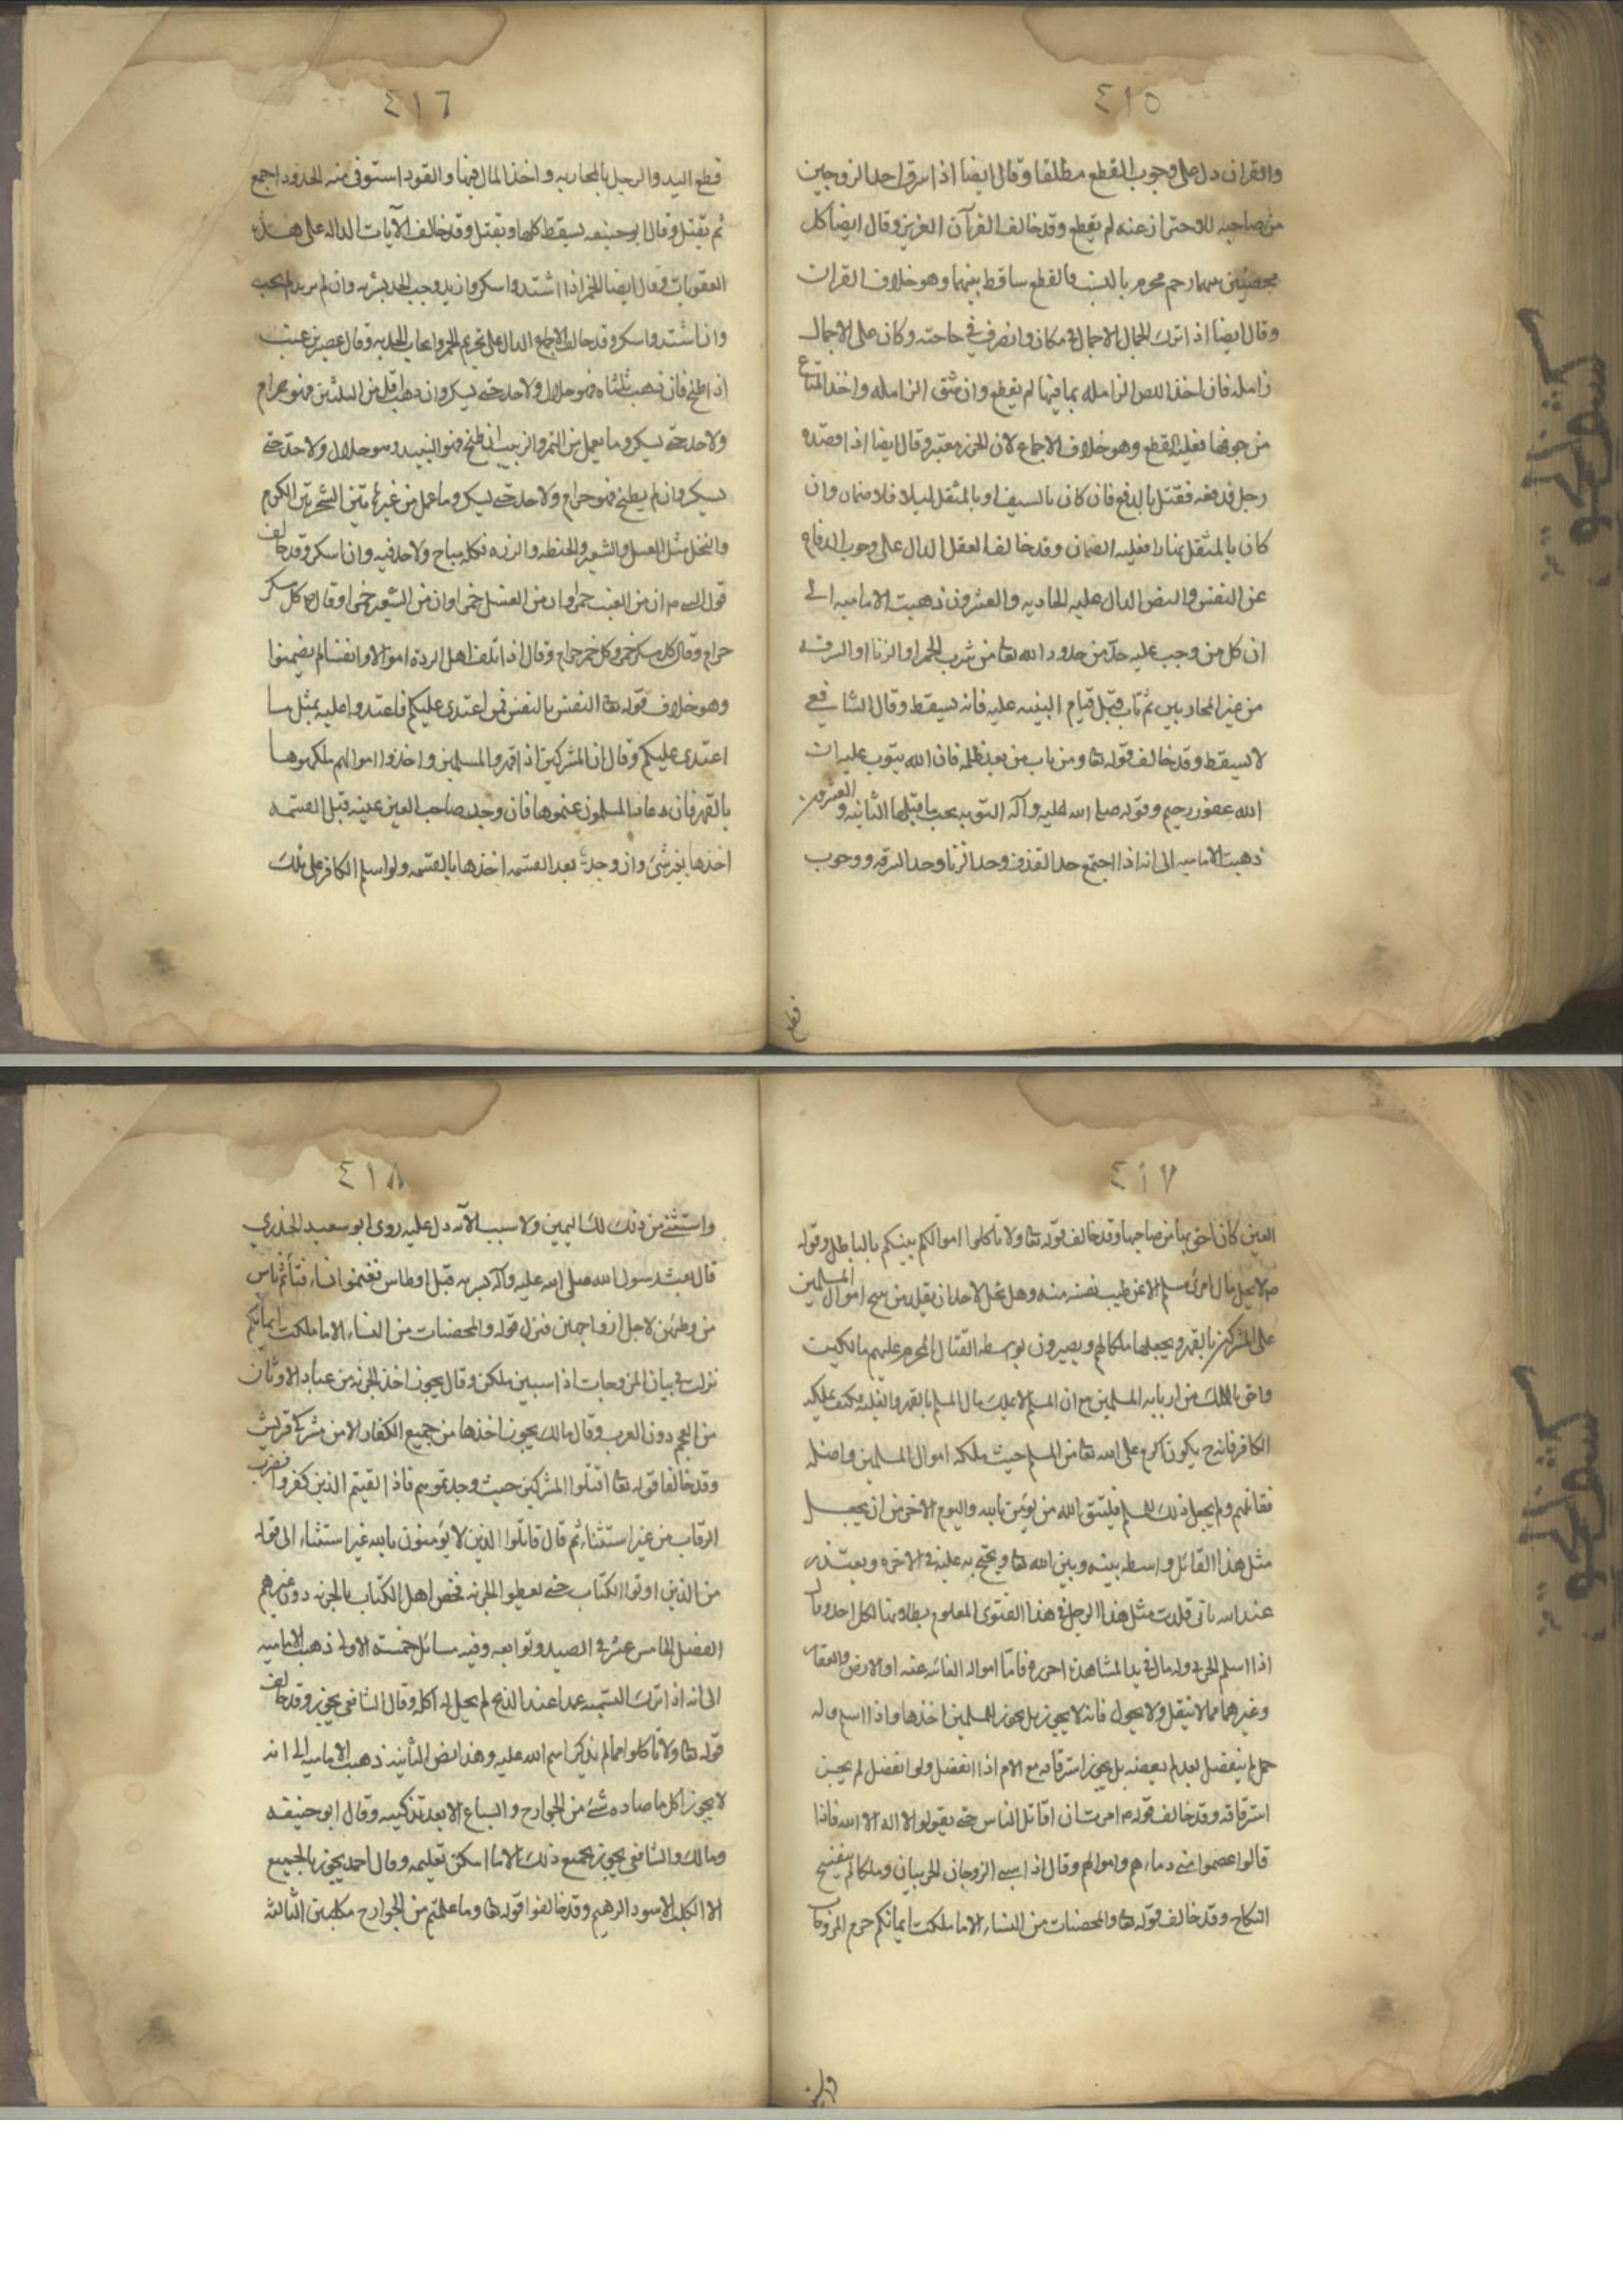 ٤١٥
والقرآن دل على وجوب القطع مطلقا وقال ايضا اذا سرق احد الزوجين
من صاحبه للاحتراز عنه لم يقطع وقد خالف القرآن العزيز وقال ايضا كل
بينهما رحم محرم بالنسب فالقطع ساقط بينهما وهو خلاف القران
وقال ايضا اذا ترك الجمال الاجمال في مكان وانصرف في حاجته وكان على الاجمال
زاملة فان اخذ اللص الزامله بما فيها لم يقطع وان شق الزامله واخذ المتاع
من جوفها فعليه القطع وهو خلاف الاجماع لان الحرز معتبر وقال ايضا اذا قصده
رجل فدفعه فقتل بالدفع فان كان بالسيف او بالمثقل ليلا فلا ضمان وان
كان بالمثقل نهارا فعليه الضمان وقد خالف العقل الدال على وجوب الدفاع
عن النفس والنص الدال عليه الحاديه والعشرون ذهبت الاماميه الى
ان كل من وجب عليه حد من حدود الله تعا من شرب الخمر او الزنا او السرقه
من غير المحاربين ثم تاب قبل قيام البينه عليه فانه يسقط وقال الشافعي
لا يسقط وقد خالف قوله تعا ومن تاب من بعد ظلمه فان الله يتوب عليه ان
الله غفور رحيم وقوله صلى الله عليه وآله التوبه يجب ما قبلها الثانيه والعشرون
ذهبت الاماميه الى انه اذا اجتمع حد القذف وحد الزنا وحد السرقه ووجوب
قطع
٤١٦
قطع اليد والرجل بالمحاربه واخذ المال فيها والقود استوفى منه الحدود اجمع
ثم يقتل وقال ابو حنيفه يسقط كلها ويقتل وقد خالف الآيات الداله على هذه
العقوبات وقال ايضا الخمر اذا اشتد واسكر وازبد وجب الحد بشربه وان لم يزبد لم يجب
وان اشتد واسكر وقد خالف الاجماع الدال على تحريم الخمر وايجاب الحد به وقال عصير عنب
اذا طبخ فان ذهب ثلثاه فهو حلال ولا حد حتى يسكر وان ذهب اقل من الثلثين فهو حرام
ولا حد حتى يسكر وما يعمل من التمر والزبيب ان طبخ فهو النبيذ وهو حلال ولا حد حتى
يسكر وان لم يطبخ فهو حرام ولا حد حتى يسكر وما عمل من غير هاتين الشجرتين الكرم
والنخل مثل العسل والشعير والحنطه والذره فكله مباح ولا حد فيه وان اسكر وقد خالف
قول النبي ص ان من العنب خمرا وان من العسل خمرا وان من الشعير خمرا وقال ع كل مسكر
حرام وقال كل مسكر خمر وكل خمر حرام وقال اذا اتلف اهل الردة اموالا وانفسا لم يضمنوا
وهو خلاف قوله تعا النفس بالنفس فمن اعتدى عليكم فاعتدوا عليه بمثل ما
اعتدى عليكم وقال ان المشركين اذا قهروا المسلمين واخذوا اموالهم ملكوها
بالقهر فان عاد المسلمون غنموها فان وجد صاحب العين عينه قبل القسمه
اخذها بغير شئ وان وجدت بعد القسمه اخذها بالقسمه ولو اسلم الكافر على تلك
٤١٧
العين كان احق بها من صاحبها وقد خالف قوله تعا ولا تاكلوا اموالكم بينكم بالباطل وقوله
ص لا يحل مال امرئ مسلم الا عن طيب نفسه منه وهل يحل لاحد ان يقلد من يبيح اموال المسلمين
على المشركين بالقهر ويجعلها ملكا لهم ويصيرون بواسطه القتال المحرم عليهم مالكين
واحق بالملك من اربابه المسلمين مع ان المسلم لا يملك مال المسلم بالقهر والغلبه فكيف يملكه
الكافر فانه ح يكون اكرم على الله تعا من المسلم حيث ملكه اموال المسلمين واضله
فقاتلهم ولم يجعل ذلك للمسلم فليتق الله من يؤمن بالله واليوم الاخر من ان يجعل
مثل هذا القائل واسطه بينه وبين الله تعا ويحتج به عليه في الاخره ويعتذر
عند الله باني قلدت مثل هذا الرجل في هذا الفتوى المعلوم بطلانها لكل احد وقال
اذا اسلم الحربي وله مال في يد المشاهده احرزه فاما امواله الغائبه عنه او الارض والعقار
وغيرهما مما لا ينقل ولا يحول فانه لا يجوز بل يجوز للمسلمين اخذها واذا اسلم وله
حمل لم ينفصل بعد لم يعصمه بل يجوز استرقاقه مع الام اذا انفصل ولو انفصل لم يجز
استرقاقه وقد خالف قوله ص امرت ان اقاتل الناس حتى يقولوا لا اله الا الله فاذا
قالوا عصموا مني دماءهم واموالهم وقال اذا سبي الزوجان الحربيان وملكا لم ينفسخ
النكاح وقد خالف قوله تعا والمحصنات من النساء الا ما ملكت ايمانكم حرم المزوجات
واستثنى
٤١٨
واستثنى من ذلك ملك اليمين ولا سبب الآيه دل عليه روى ابو سعيد الخدري
قال بعث رسول الله صلى الله عليه وآله سريه قبل اوطاس فغنموا نساء فتأثم ناس
من وطئهن لاجل ازواجهن فنزل قوله والمحصنات من النساء الا ما ملكت ايمانكم
نزلت في بيان المزوجات اذا سبين ملكن وقال يجوز اخذ الجزيه من عباد الاوثان
من العجم دون العرب وقال مالك يجوز اخذها من جميع الكفار الا من مشركي قريش
وقد خالفا قوله تعا اقتلوا المشركين حيث وجدتموهم فاذا لقيتم الذين كفروا فضرب
الرقاب من غير استثناء ثم قال قاتلوا الذين لا يؤمنون بالله غير استثناء الى قوله
من الذين اوتوا الكتاب حتى يعطوا الجزيه فخص اهل الكتاب بالجزيه دون غيرهم
الفصل الخامس عشر في الصيد وتوابعه وفيه مسائل خمسة الاولى ذهبت الاماميه
الى انه اذا ترك التسميه عمدا عند الذبح لم يحل له اكله وقال الشافعي يجوز وقد خالف
قوله تعا ولا تاكلوا مما لم يذكر اسم الله عليه وهذا نص الثانيه ذهبت الاماميه الى انه
لا يجوز اكل ما صاده شئ من الجوارح والسباع الا بعد تذكيته وقال ابو حنيفه
ومالك والشافعي يجوز بجميع ذلك الا ما امكن تعليمه وقال احمد يجوز بالجميع
الا الكلب الاسود البهيم وقد خالفوا قوله تعا وما علمتم من الجوارح مكلبين الثالثه